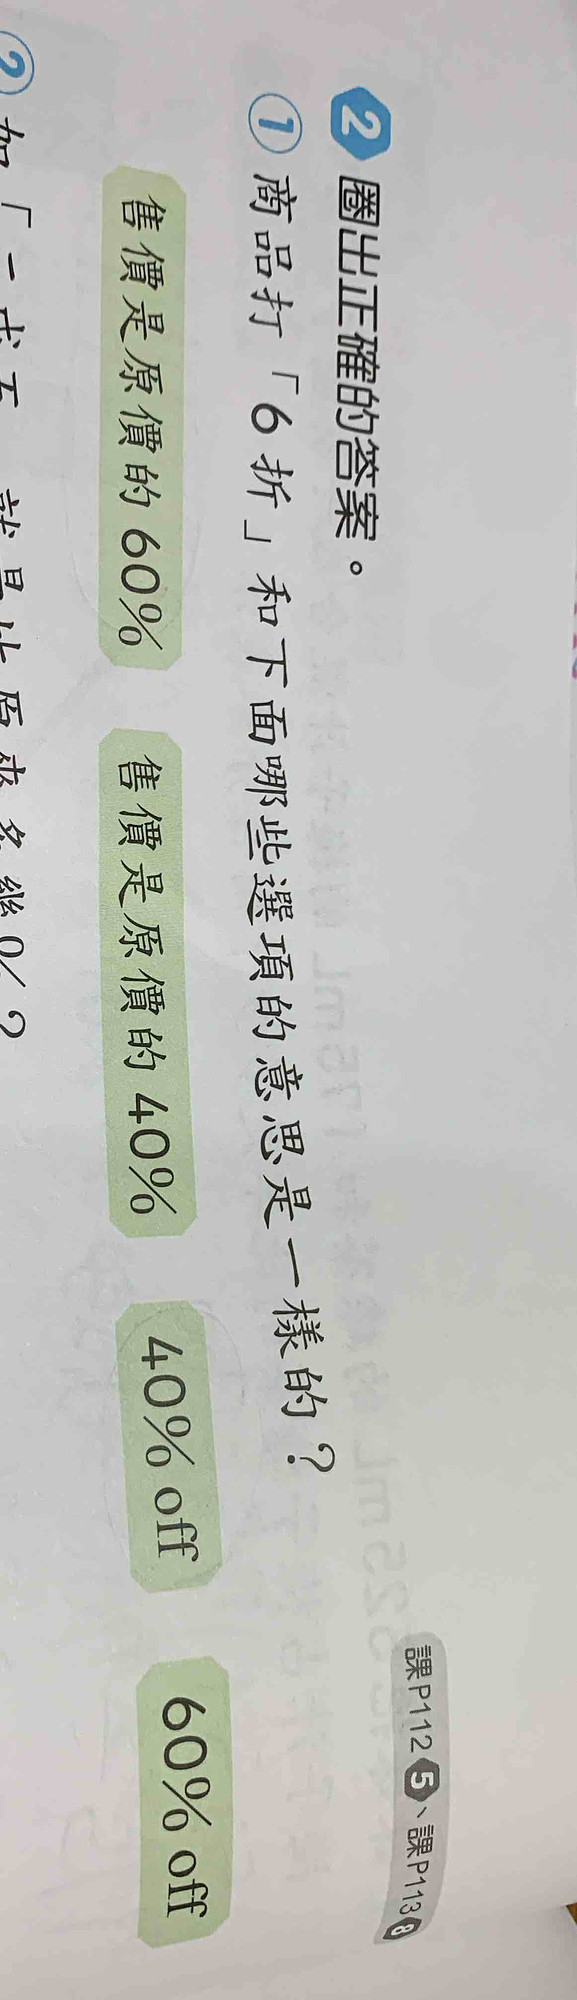 課P112 5、課P113 8
2 圈出正確的答案。
① 商品打「6折」和下面哪些選項的意思是一樣的？
售價是原價的60% 售價是原價的40% 40% off 60% off
② 如「一成五」就是比原來多幾%？